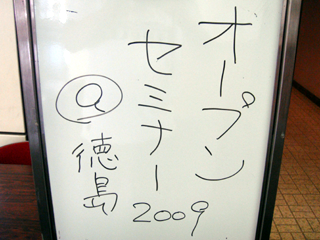 オープン
セミナー
2009
@徳島